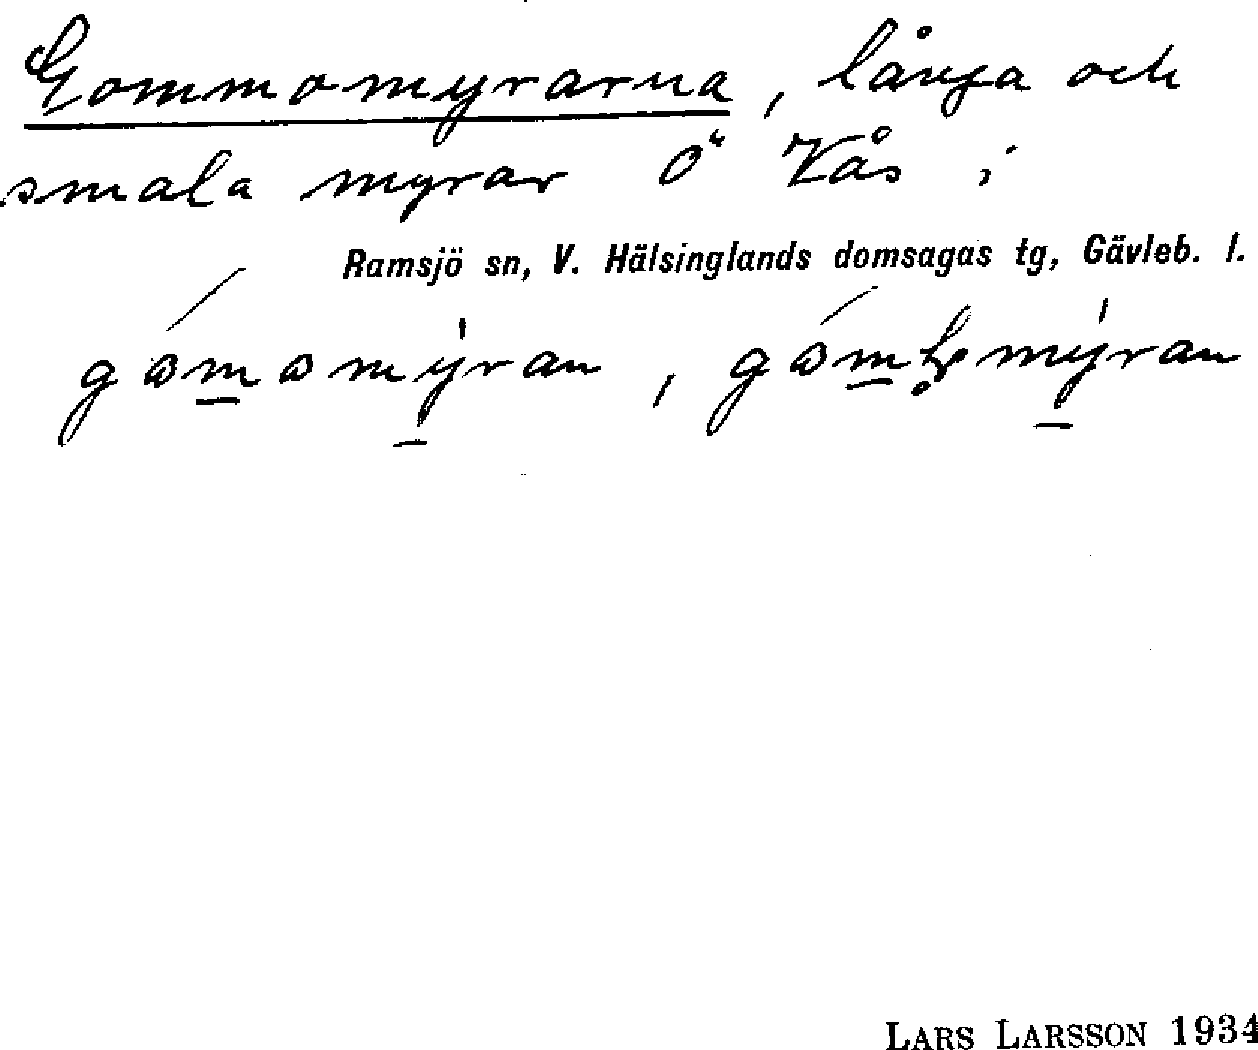 Gommomyrarna, långa och
smala myrar Ö Kås i
Ramsjö sn, V. Hälsinglands domsagas tg, Gävleb. l.
gómomýran,
LARS LARSSON 1934